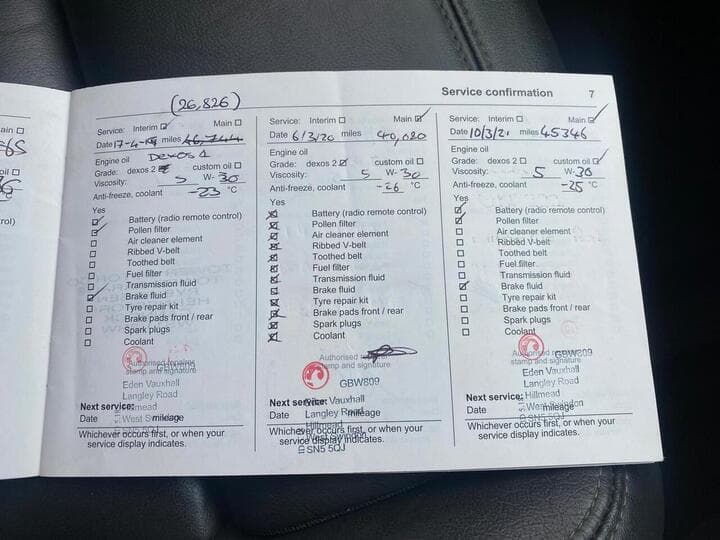 Service confirmation 7
(26,826)
Service: Interim ☑ Main ☐
Date 17-4-19 miles 46,744
Engine oil Dexos 1
Grade: dexos 2 custom oil ☐
Viscosity: 5 W- 30
Anti-freeze, coolant -23 °C
Yes
☑ Battery (radio remote control)
☑ Pollen filter
☐ Air cleaner element
☐ Ribbed V-belt
☐ Toothed belt
☐ Fuel filter
☐ Transmission fluid
☑ Brake fluid
☐ Tyre repair kit
☐ Brake pads front / rear
☐ Spark plugs
☐ Coolant
Authorised repairer
stamp and signature
GBW809
Eden Vauxhall
Langley Road
Next service:
Date mileage
Whichever occurs first, or when your
service display indicates.
Service: Interim ☐ Main ☑
Date 6/3/20 miles 40,020
Engine oil
Grade: dexos 2 ☑ custom oil ☐
Viscosity: 5 W- 30
Anti-freeze, coolant -26 °C
Yes
☒ Battery (radio remote control)
☒ Pollen filter
☒ Air cleaner element
☒ Ribbed V-belt
☒ Toothed belt
☒ Fuel filter
☒ Transmission fluid
☑ Brake fluid
☒ Tyre repair kit
☒ Brake pads front / rear
☒ Spark plugs
☒ Coolant
Authorised
stamp and signature
GBW809
Vauxhall
Next service:
Langley Road
Date mileage
Hillmead
Whichever occurs first, or when your
service display indicates.
SN5 5QJ
Service: Interim ☐ Main ☑
Date 10/3/21 miles 45346
Engine oil
Grade: dexos 2 ☐ custom oil ☑
Viscosity: 5 W- 30
Anti-freeze, coolant -25 °C
Yes
☑ Battery (radio remote control)
☑ Pollen filter
☐ Air cleaner element
☐ Ribbed V-belt
☐ Toothed belt
☐ Fuel filter
☐ Transmission fluid
☑ Brake fluid
☐ Tyre repair kit
☐ Brake pads front / rear
☐ Spark plugs
☐ Coolant
Authorised
stamp and signature
GBW809
Eden Vauxhall
Langley Road
Next service: Hillmead
Date mileage
SN5 5QJ
Whichever occurs first, or when your
service display indicates.